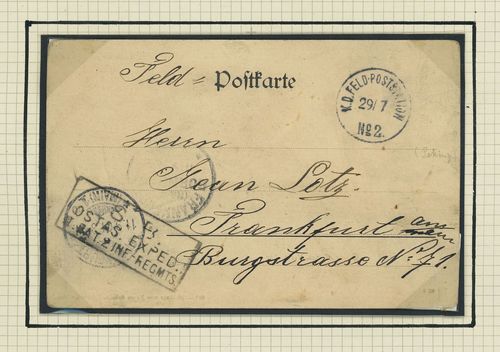 Feld = Postkarte
K.D. FELD-POSTSTATION
29/7
No 2.
Herrn
Jean Lotz.
Frankfurt am
Main
Burgstrasse No 71.
OSTAS. EXPED.
BAT. 2. INF/REGMTS.